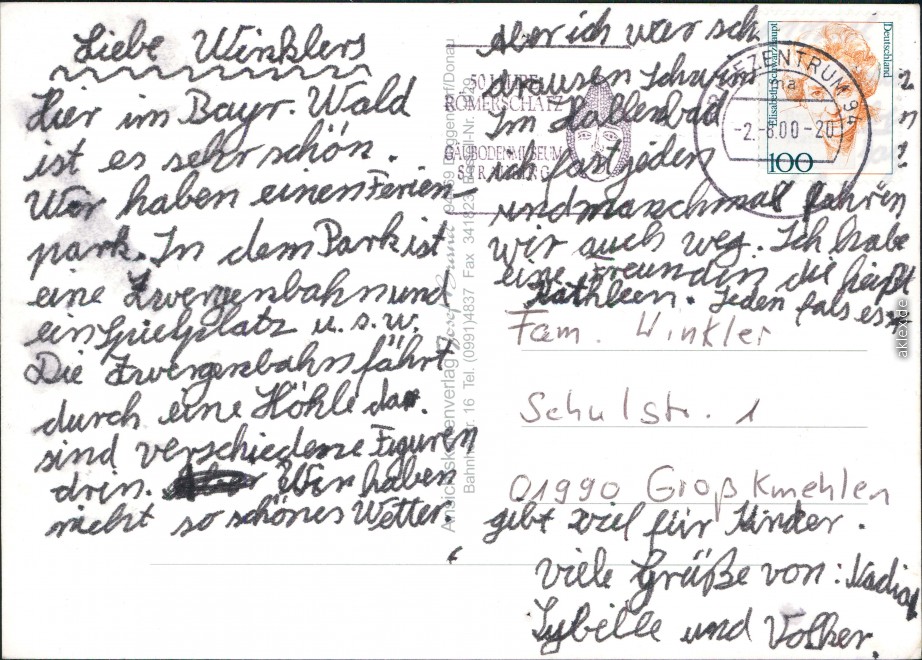 Liebe Winklers
Hier im Bayr. Wald
ist es sehr schön.
Wir haben einen Ferien-
park. In dem Park ist
eine Zwergenbahn und
ein Spielplatz u. s. w.
Die Zwergenbahn fährt
durch eine Höhle da
sind verschiedene Figuren
drin. Wir haben
nicht so schönes Wetter.
Aber ich war sch
drausen schwim
Im Hallenbad
ich fast jeden
und manchmal fahren
wir auch weg. Ich habe
eine Freundin die heißt
Kathleen. Jeden fals es
gibt viel für Kinder.
viele Grüße von: Nadia
Sybille und Volker.
Fam. Winkler
Schulstr. 1
01990 Großkmehlen
50 JAHRE
RÖMERSCHATZ
GÄUBODENMUSEUM
STRAUBING
BRIEFZENTRUM 94
-2.-8.00-20
Deutschland
Elisabeth Schwarzhaupt
100
Ansichtskartenverlag
Bahnhofstr. 16 Tel. (0991)4837 Fax 341823
akleo.de